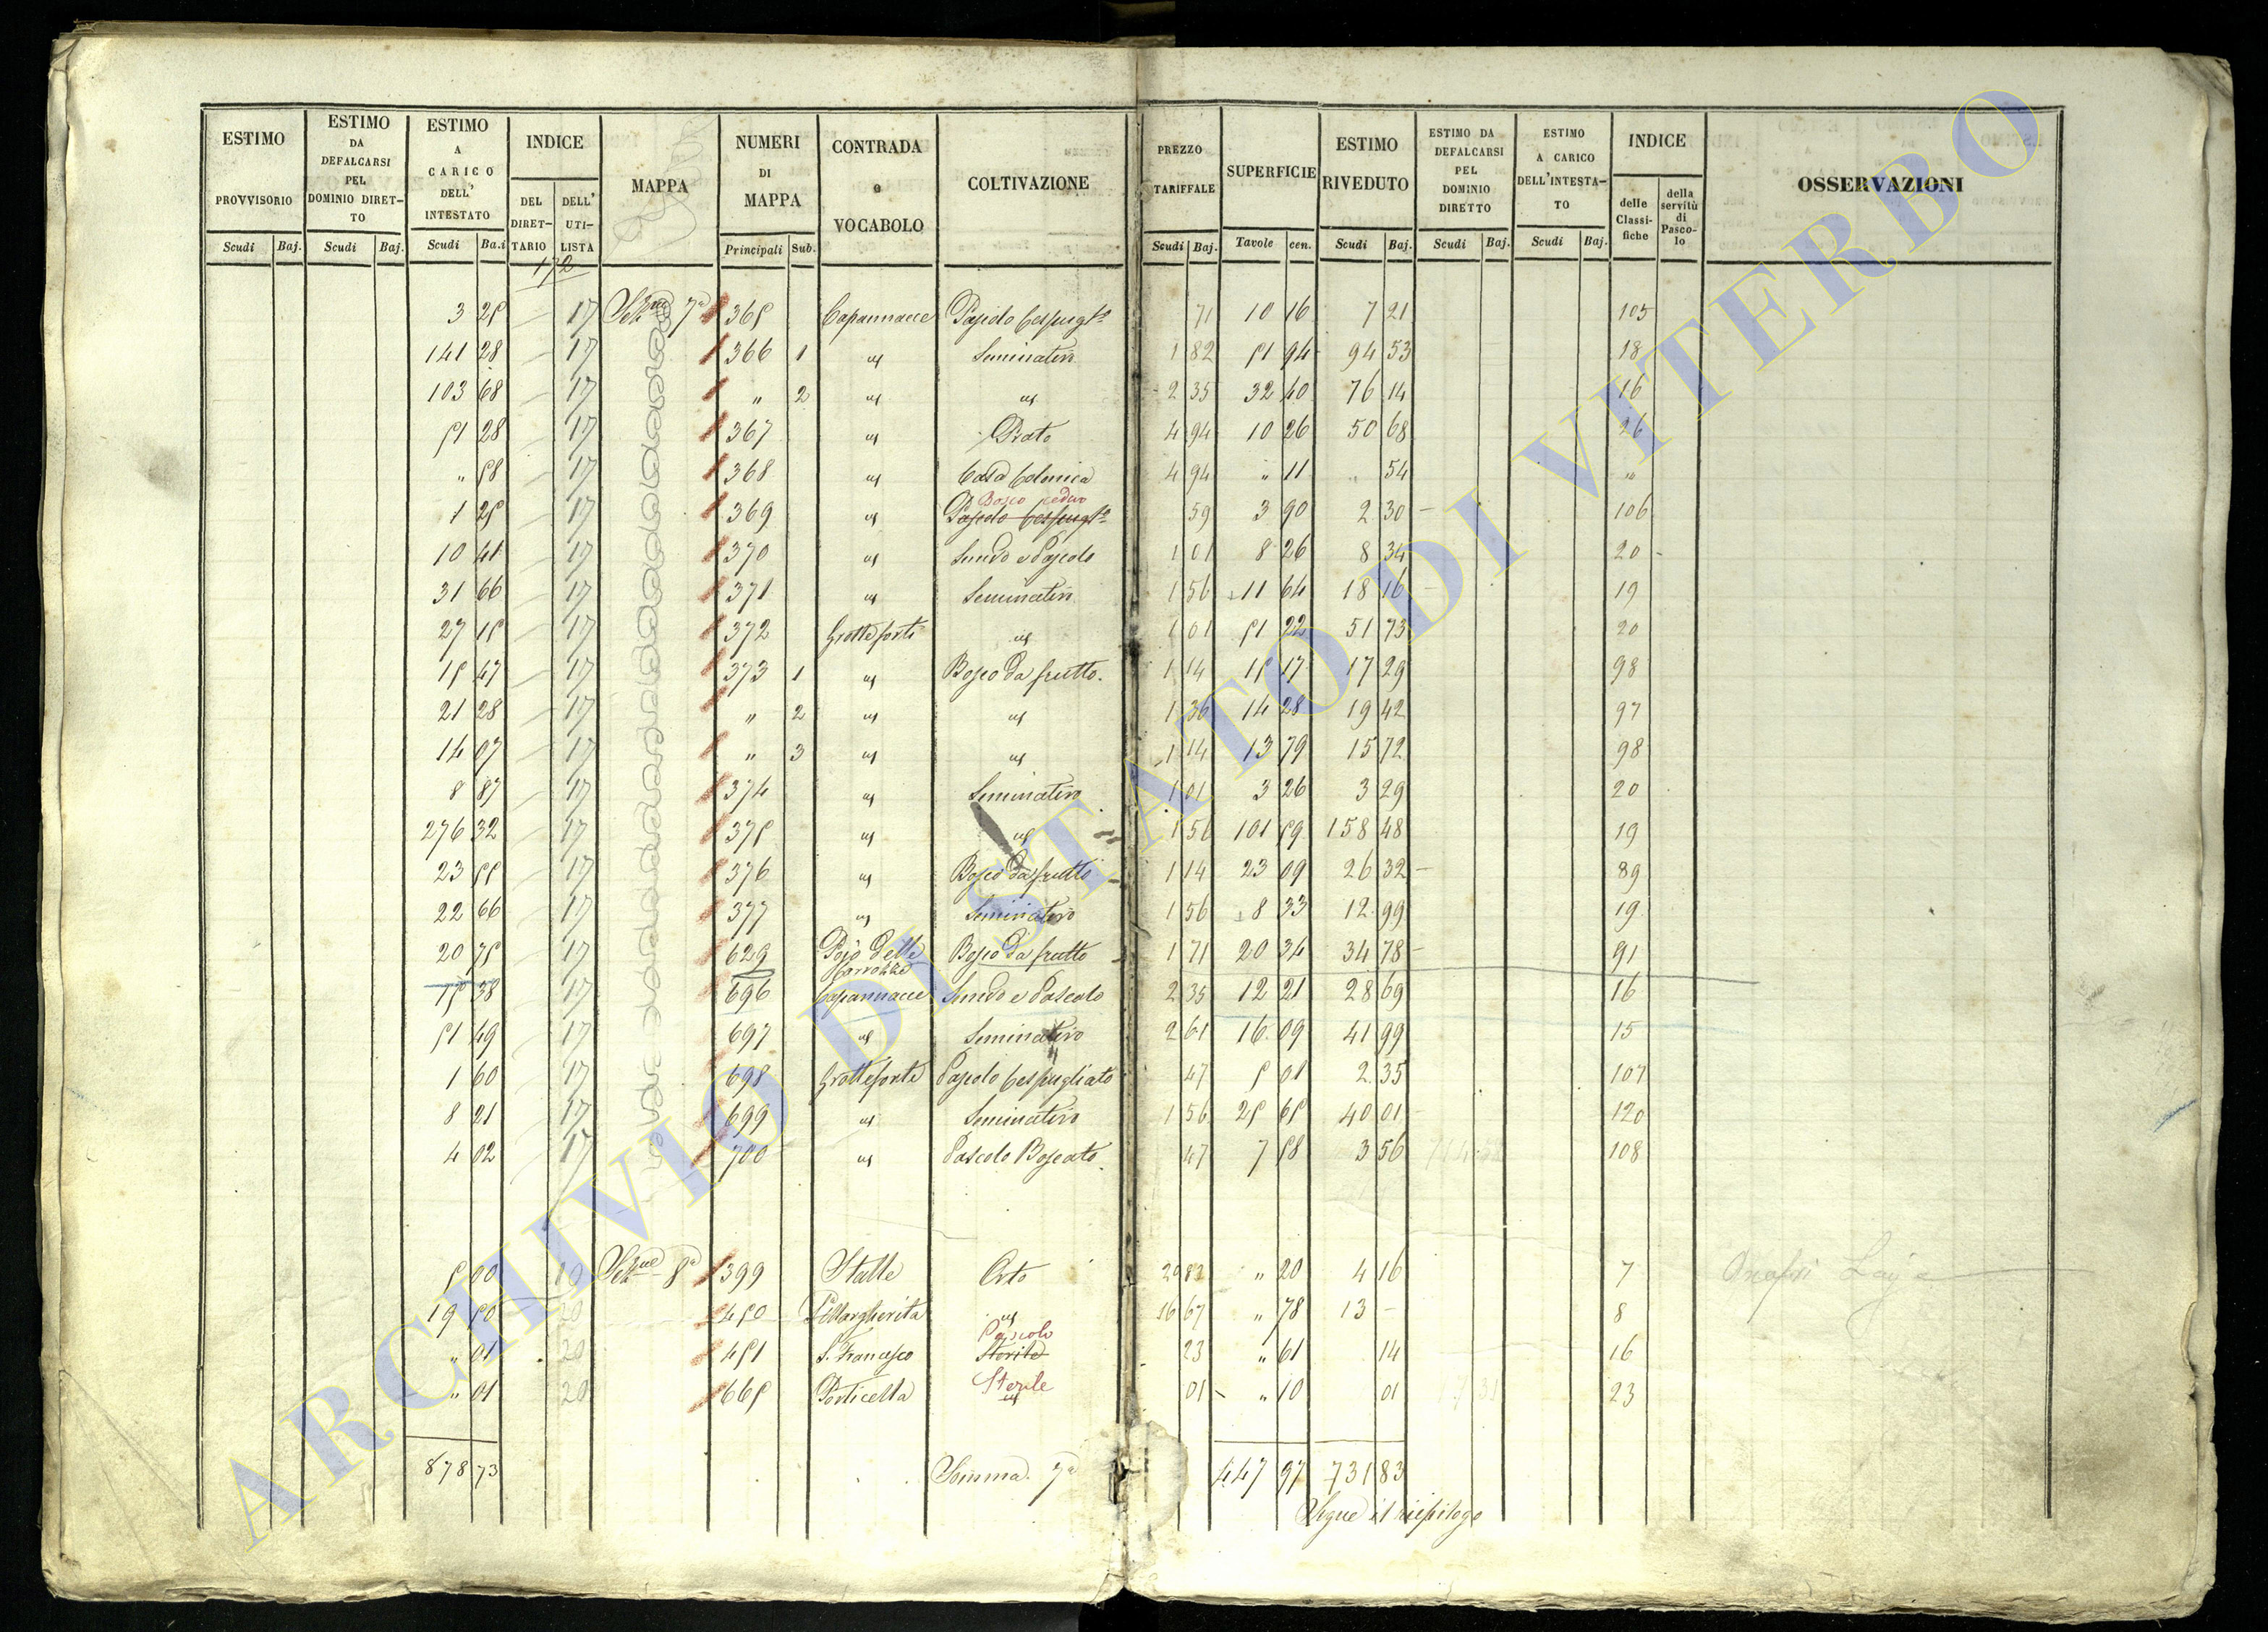 ESTIMO PROVVISORIO Scudi Baj.
ESTIMO DA DEFALCARSI PEL DOMINIO DIRET-TO Scudi Baj.
ESTIMO A CARICO DELL' INTESTATO Scudi Ba.i
INDICE DEL DIRET-TARIO DELL' UTI-LISTA
MAPPA
NUMERI DI MAPPA Principali Sub.
CONTRADA o VOCABOLO
COLTIVAZIONE
PREZZO TARIFFALE Scudi Baj.
SUPERFICIE Tavole cen.
ESTIMO RIVEDUTO Scudi Baj.
ESTIMO DA DEFALCARSI PEL DOMINIO DIRETTO Scudi Baj.
ESTIMO A CARICO DELL'INTESTA-TO Scudi Baj.
INDICE delle Classi-fiche della servitù di Pasco-lo
OSSERVAZIONI
172
3 25 17 Sez.ne 7a 365 Capannacce Pascolo Cespugto 71 10 16 7 21 105
141 28 17 366 1 us Seminativo 1 82 51 94 94 53 18
103 68 17 " 2 us us 2 35 32 40 76 14 16
51 28 17 367 us Prato 4 94 10 26 50 68 26
" 58 17 368 us Casa Colonica 4 94 " 11 " 54 "
Bosco ceduo
1 25 17 369 us Pascolo Cespugto 59 3 90 2 30 106
10 41 17 370 us Sundo e Pascolo 1 01 8 26 8 34 20
31 66 17 371 us Seminativo 1 56 11 64 18 16 19
27 15 17 372 Grotteforte us 1 01 51 22 51 73 20
15 47 17 373 1 us Bosco da frutto 1 14 15 17 17 29 98
21 28 17 " 2 us us 1 36 14 28 19 42 97
14 07 17 " 3 us us 1 14 13 79 15 72 98
8 87 17 374 us Seminativo 1 01 3 26 3 29 20
276 32 17 375 us us 1 56 101 59 158 48 19
23 55 17 376 us Bosco da frutto 1 14 23 09 26 32 89
22 66 17 377 us Seminativo 1 56 8 33 12 99 19
20 75 17 629 Pojo delle Carrozze Bosco da frutto 1 71 20 34 34 78 91
15 38 17 696 Capannacce Sundo e Pascolo 2 35 12 21 28 69 16
51 49 17 697 us Seminativo 2 61 16 09 41 99 15
1 60 17 698 Grotteforte Pascolo Cespugliato 47 5 01 2 35 107
8 21 17 699 us Seminativo 1 56 25 65 40 01 120
4 02 17 700 us Pascolo Boscato 47 7 58 3 56 108
5 00 10 Sez.ne 8a 399 Stalle Orto 20 82 " 20 4 16 7 Onofri
19 50 20 450 S. Margherita us 16 67 " 78 13 - 8
Pascolo
" 01 20 451 S. Francesco Sterile 23 " 61 14 16
Sterile
" 01 20 665 Porticella us 01 " 10 01 23
878 73 Somma 7a 447 97 731 83
Segue il riepilogo
ARCHIVIO DI STATO DI VITERBO